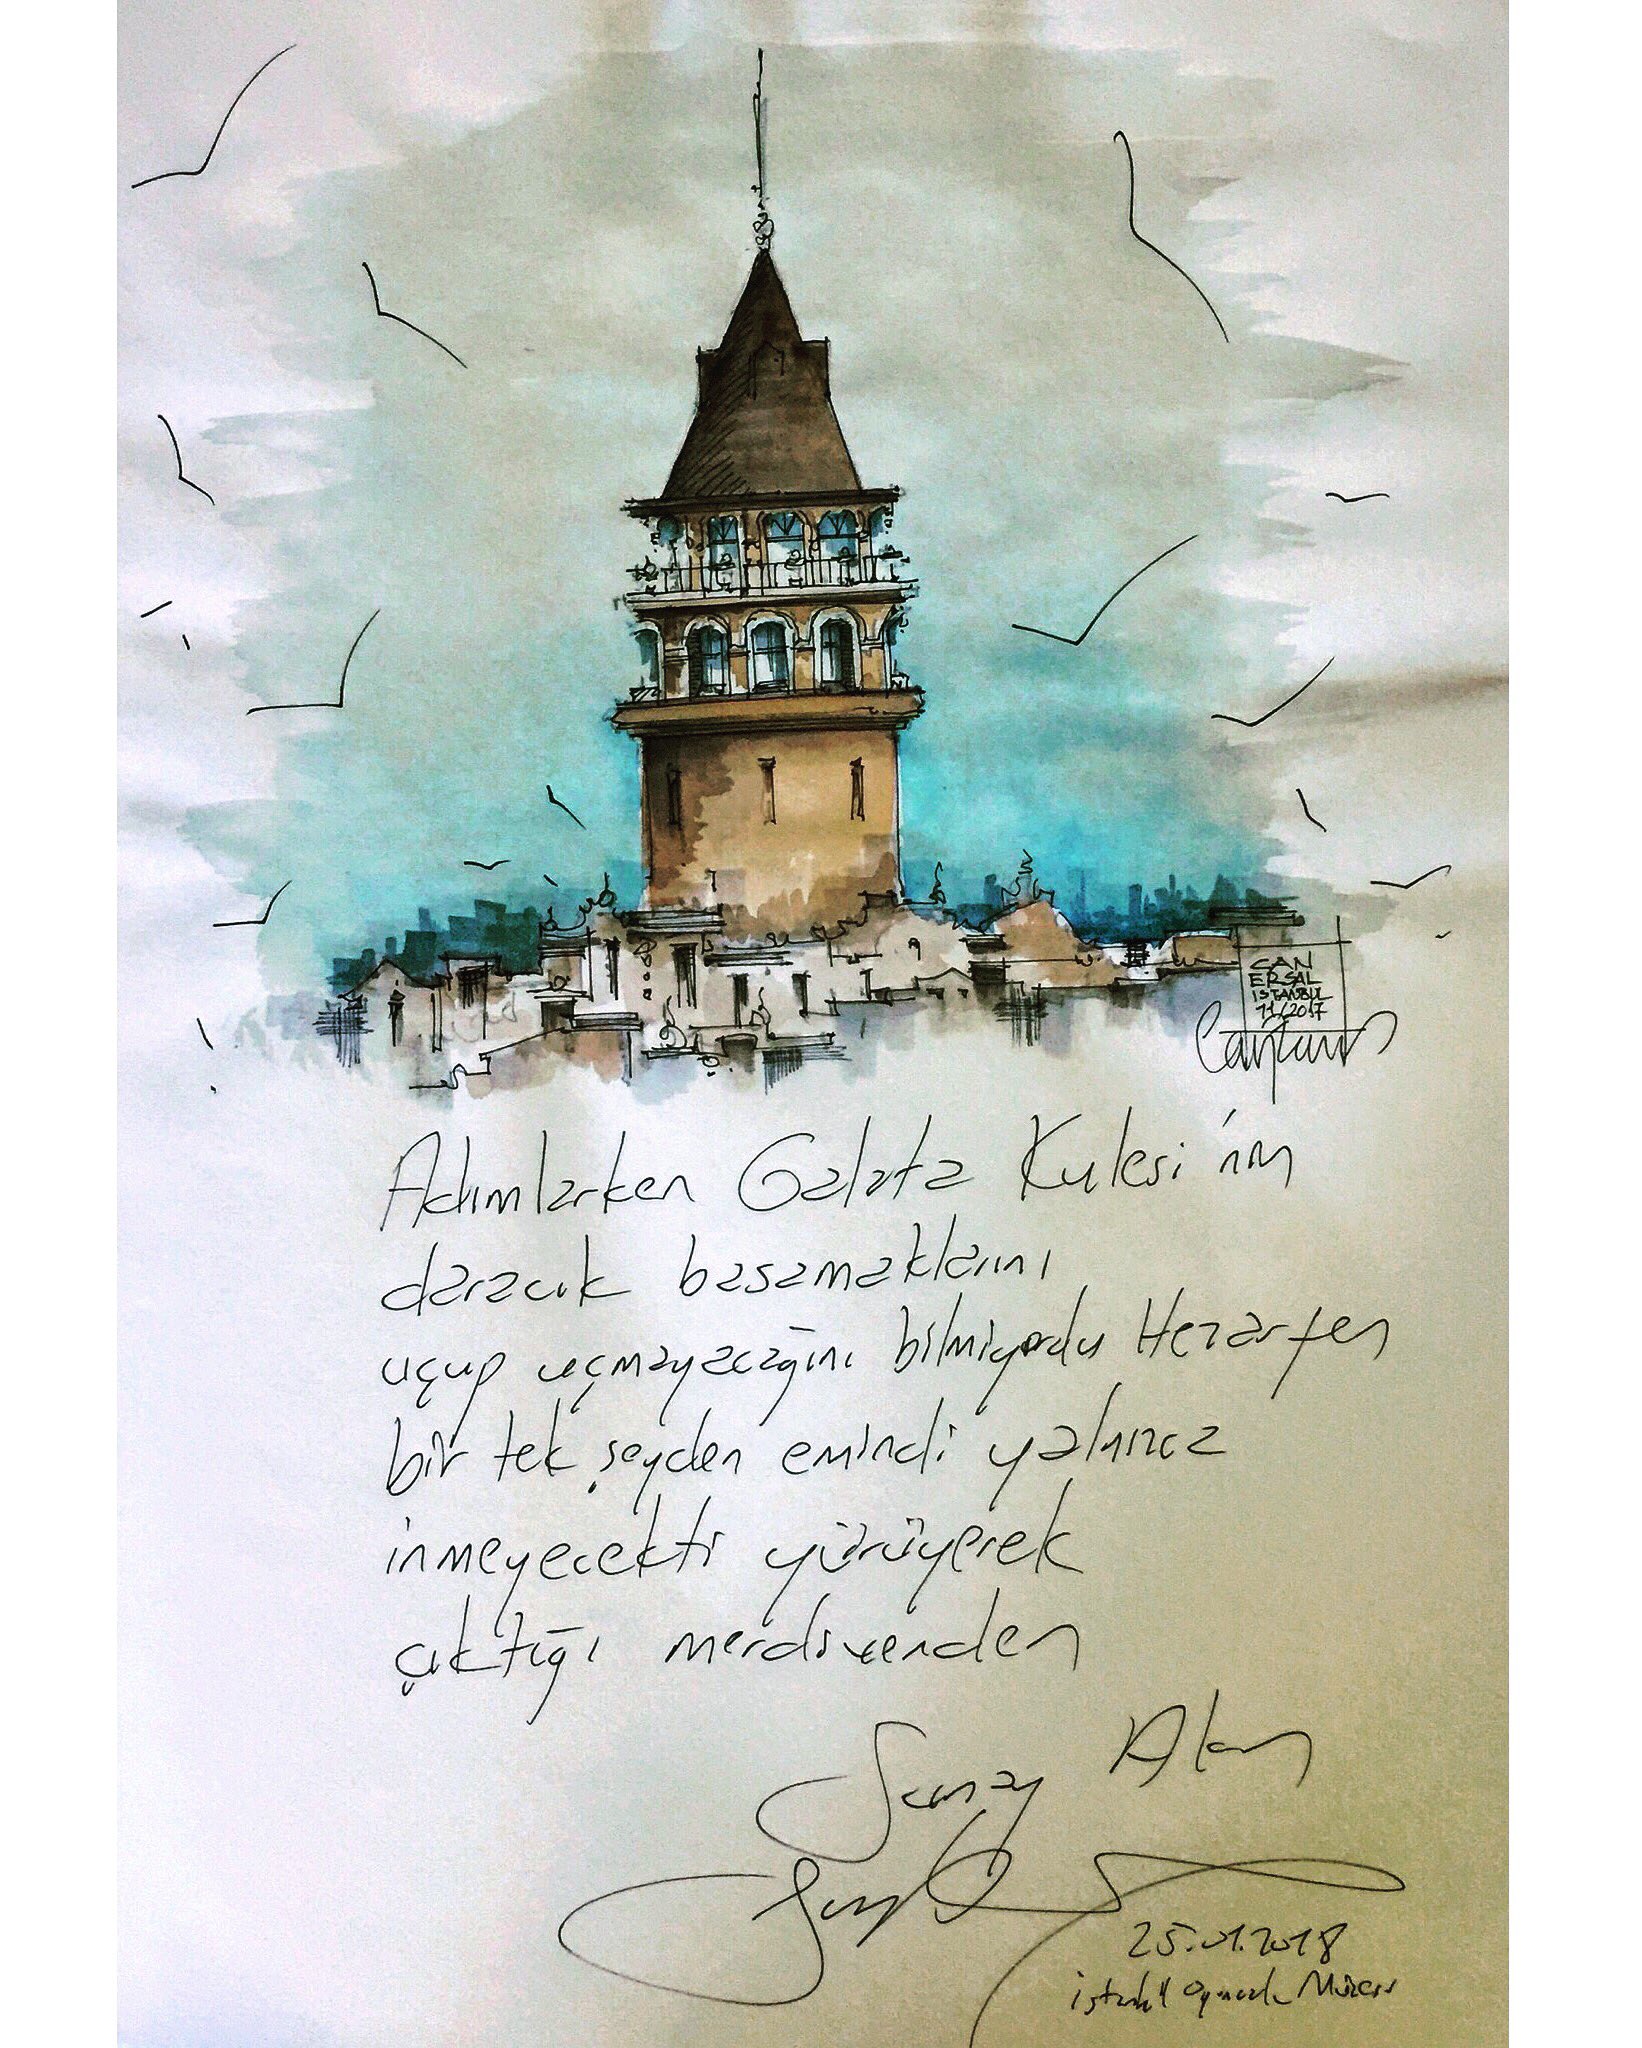 CAN
ERSAL
İSTANBUL
11/2017
Adımlarken Galata Kulesi'nin
daracık basamaklarını
uçup uçmayacağını bilmiyordu Hezarfen
bir tek şeyden emindi yalnızca
inmeyecekti yürüyerek
çıktığı merdivenden
Sunay Akın
25.01.2018
İstanbul Oyuncak Müzesi